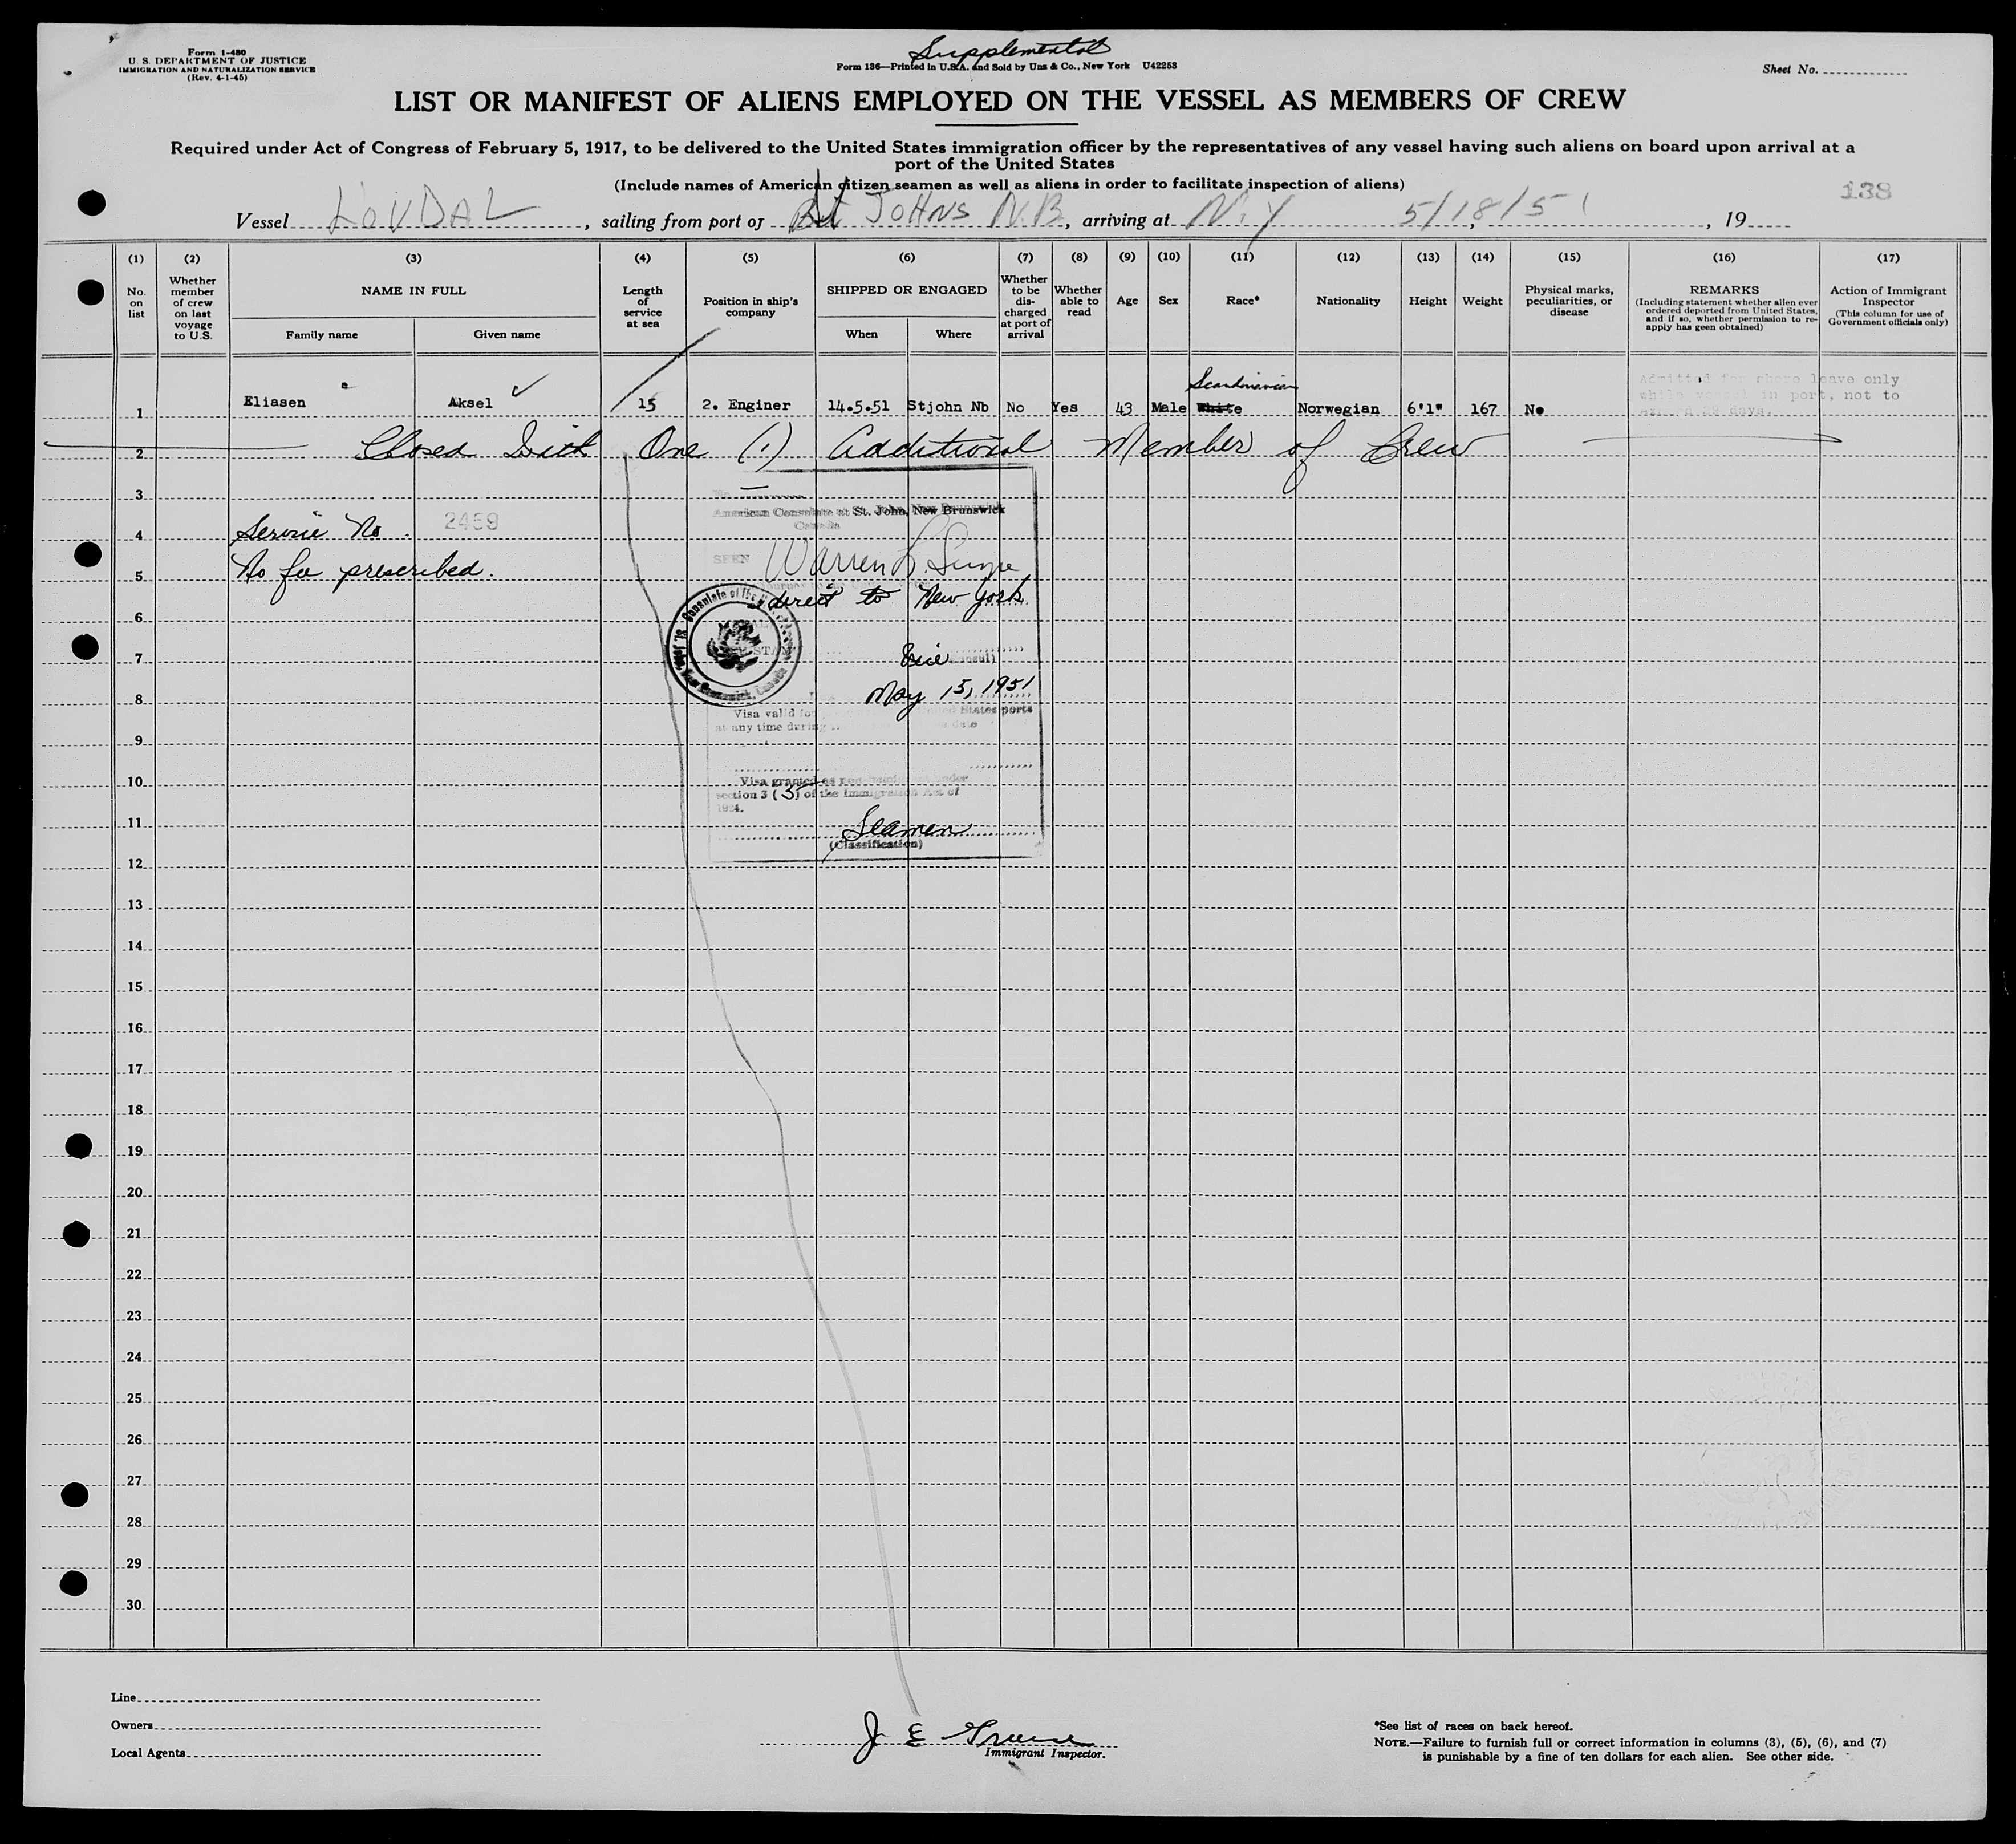 Form I-480
U. S. DEPARTMENT OF JUSTICE
IMMIGRATION AND NATURALIZATION SERVICE
(Rev. 4-1-45)
Supplemental
Form 136—Printed in U.S.A. and Sold by Unz & Co., New York U42253
Sheet No.
LIST OR MANIFEST OF ALIENS EMPLOYED ON THE VESSEL AS MEMBERS OF CREW
Required under Act of Congress of February 5, 1917, to be delivered to the United States immigration officer by the representatives of any vessel having such aliens on board upon arrival at a
port of the United States
(Include names of American citizen seamen as well as aliens in order to facilitate inspection of aliens)
138
Vessel LOVDAL, sailing from port of St JOHNS N.B., arriving at N.Y 5/18/51, 19
(1) (2) (3) (4) (5) (6) (7) (8) (9) (10) (11) (12) (13) (14) (15) (16) (17)
No. on list
Whether member of crew on last voyage to U.S.
NAME IN FULL
Family name
Given name
Length of service at sea
Position in ship's company
SHIPPED OR ENGAGED
When
Where
Whether to be discharged at port of arrival
Whether able to read
Age
Sex
Race*
Nationality
Height
Weight
Physical marks, peculiarities, or disease
REMARKS
(Including statement whether alien ever ordered deported from United States, and if so, whether permission to re-apply has geen obtained)
Action of Immigrant Inspector
(This column for use of Government officials only)
Scandinavian
1 Eliasen Aksel 15 2. Enginer 14.5.51 Stjohn Nb No Yes 43 Male White Norwegian 6'1" 167 No
Admitted for shore leave only
while vessel in port, not to
exceed 29 days.
2 Closed With One (1) Additional Member of Crew
3
American Consulate at St. John, New Brunswick
Canada
4 Service No. 2459
SEEN Warren L.
5 No fee prescribed.
direct to New York
6
Consulate of the
St. John, New Brunswick, Canada
7
Vice Consul
8 May 15, 1951
Visa valid for States ports
at any time during date
9
10
Visa granted as non under
section 3 (5) of the Immigration Act of
1924.
11 Seamen
(Classification)
12
13
14
15
16
17
18
19
20
21
22
23
24
25
26
27
28
29
30
Line
Owners
Local Agents
J E Greene
Immigrant Inspector.
*See list of races on back hereof.
NOTE.—Failure to furnish full or correct information in columns (3), (5), (6), and (7)
is punishable by a fine of ten dollars for each alien. See other side.